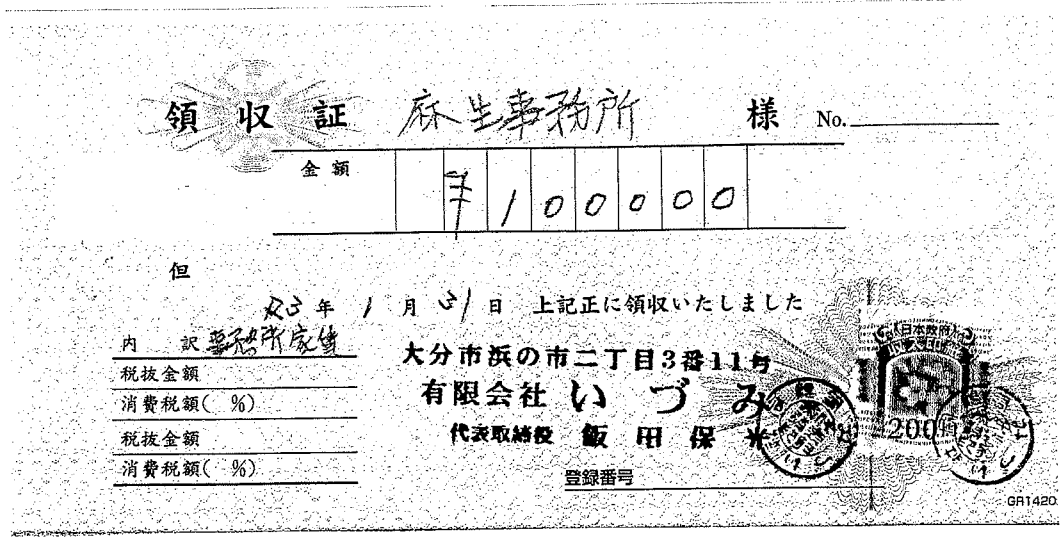 領収証 麻生事務所 様 No.
金額 ¥100000
但
R3年1月31日 上記正に領収いたしました
内訳 事務所家賃
税抜金額
消費税額( %)
税抜金額
消費税額( %)
大分市浜の市二丁目3番11号
有限会社 いづみ
代表取締役 飯田保光
登録番号
日本政府
200円
GR1420